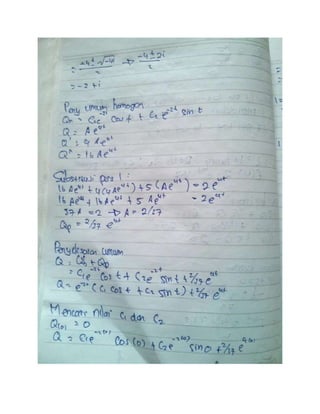 = -4 ± √-4 / 2 → -4 ± 2i / 2
= -2 + i
Peny umum homogen
Qh = C1e^-2t cos t + C2 e^-2t sin t
Q = A e^4t
Q' = 4 A e^4t
Q" = 16 A e^4t
Substitusi pers 1 :
16 Ae^4t + 4(4Ae^4t) + 5(Ae^4t) = 2e^4t
16 Ae^4t + 16 Ae^4t + 5 Ae^4t = 2e^4t
37A = 2 → A = 2/37
Qp = 2/37 e^4t
Penyelesaian umum
Q = Qh + Qp
= C1e^-2t cos t + C2e^-2t sin t + 2/37 e^4t
Q = e^-2t (C1 cos t + C2 sin t) + 2/37 e^4t
Mencari nilai C1 dan C2
Q(0) = 0
Q = C1e^-2(0) cos(0) + C2e^-2(0) sin 0 + 2/37 e^4(0)